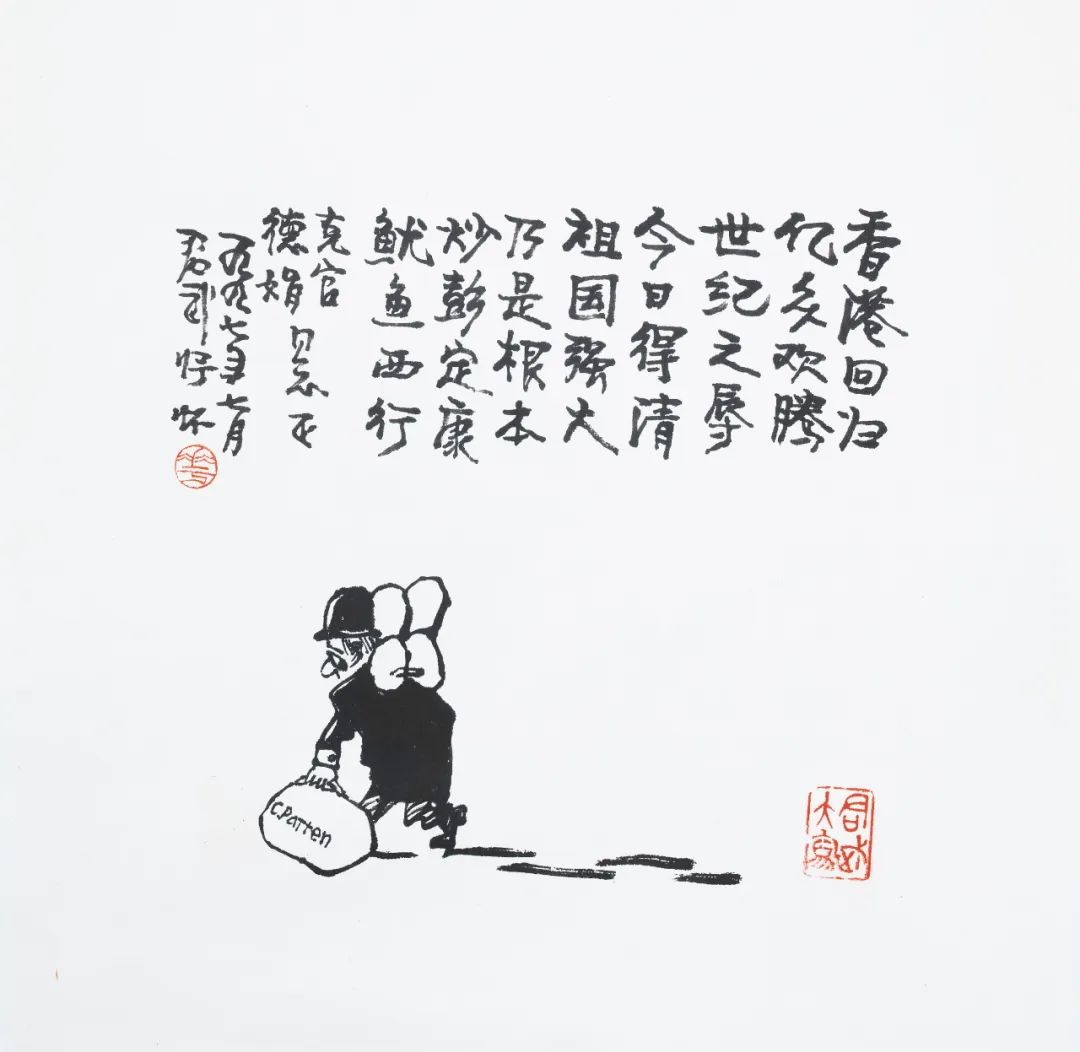 香港回归
亿众欢腾
世纪之辱
今日得清
祖国强大
乃是根本
炒彭定康
鱿鱼西行
克官
德娟
同志正
一九九七年七月
君武抒怀
C.Patten
君武
大寫